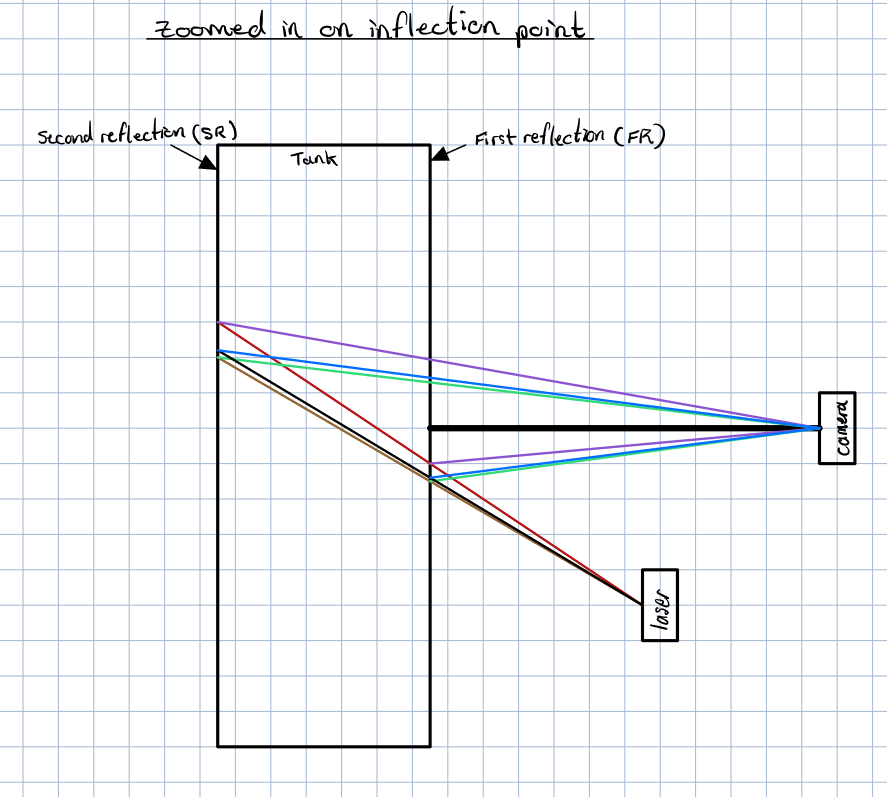 Zoomed in on inflection point
Second reflection (SR)
First reflection (FR)
Tank
camera
laser